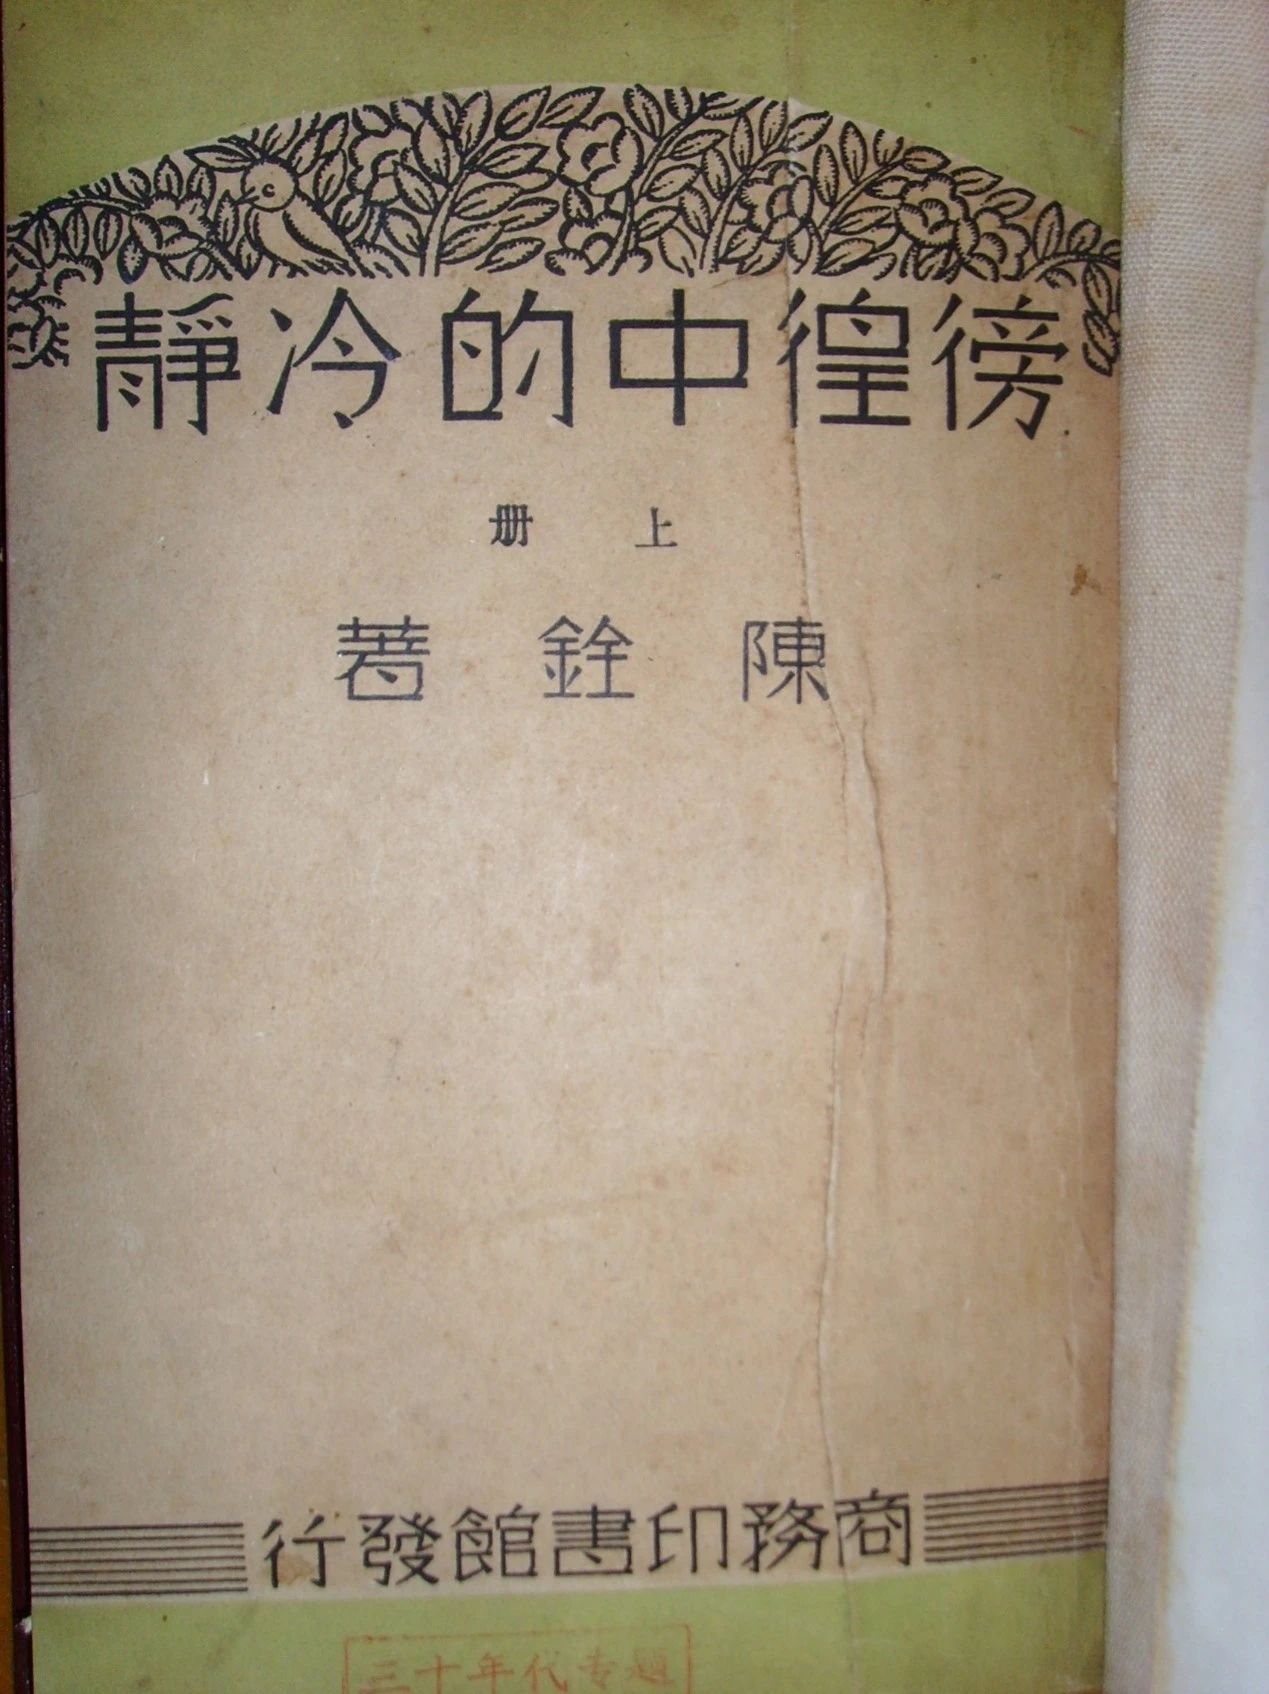 徬徨中的冷靜
上册
陳銓著
商務印書館發行
三十年代专題